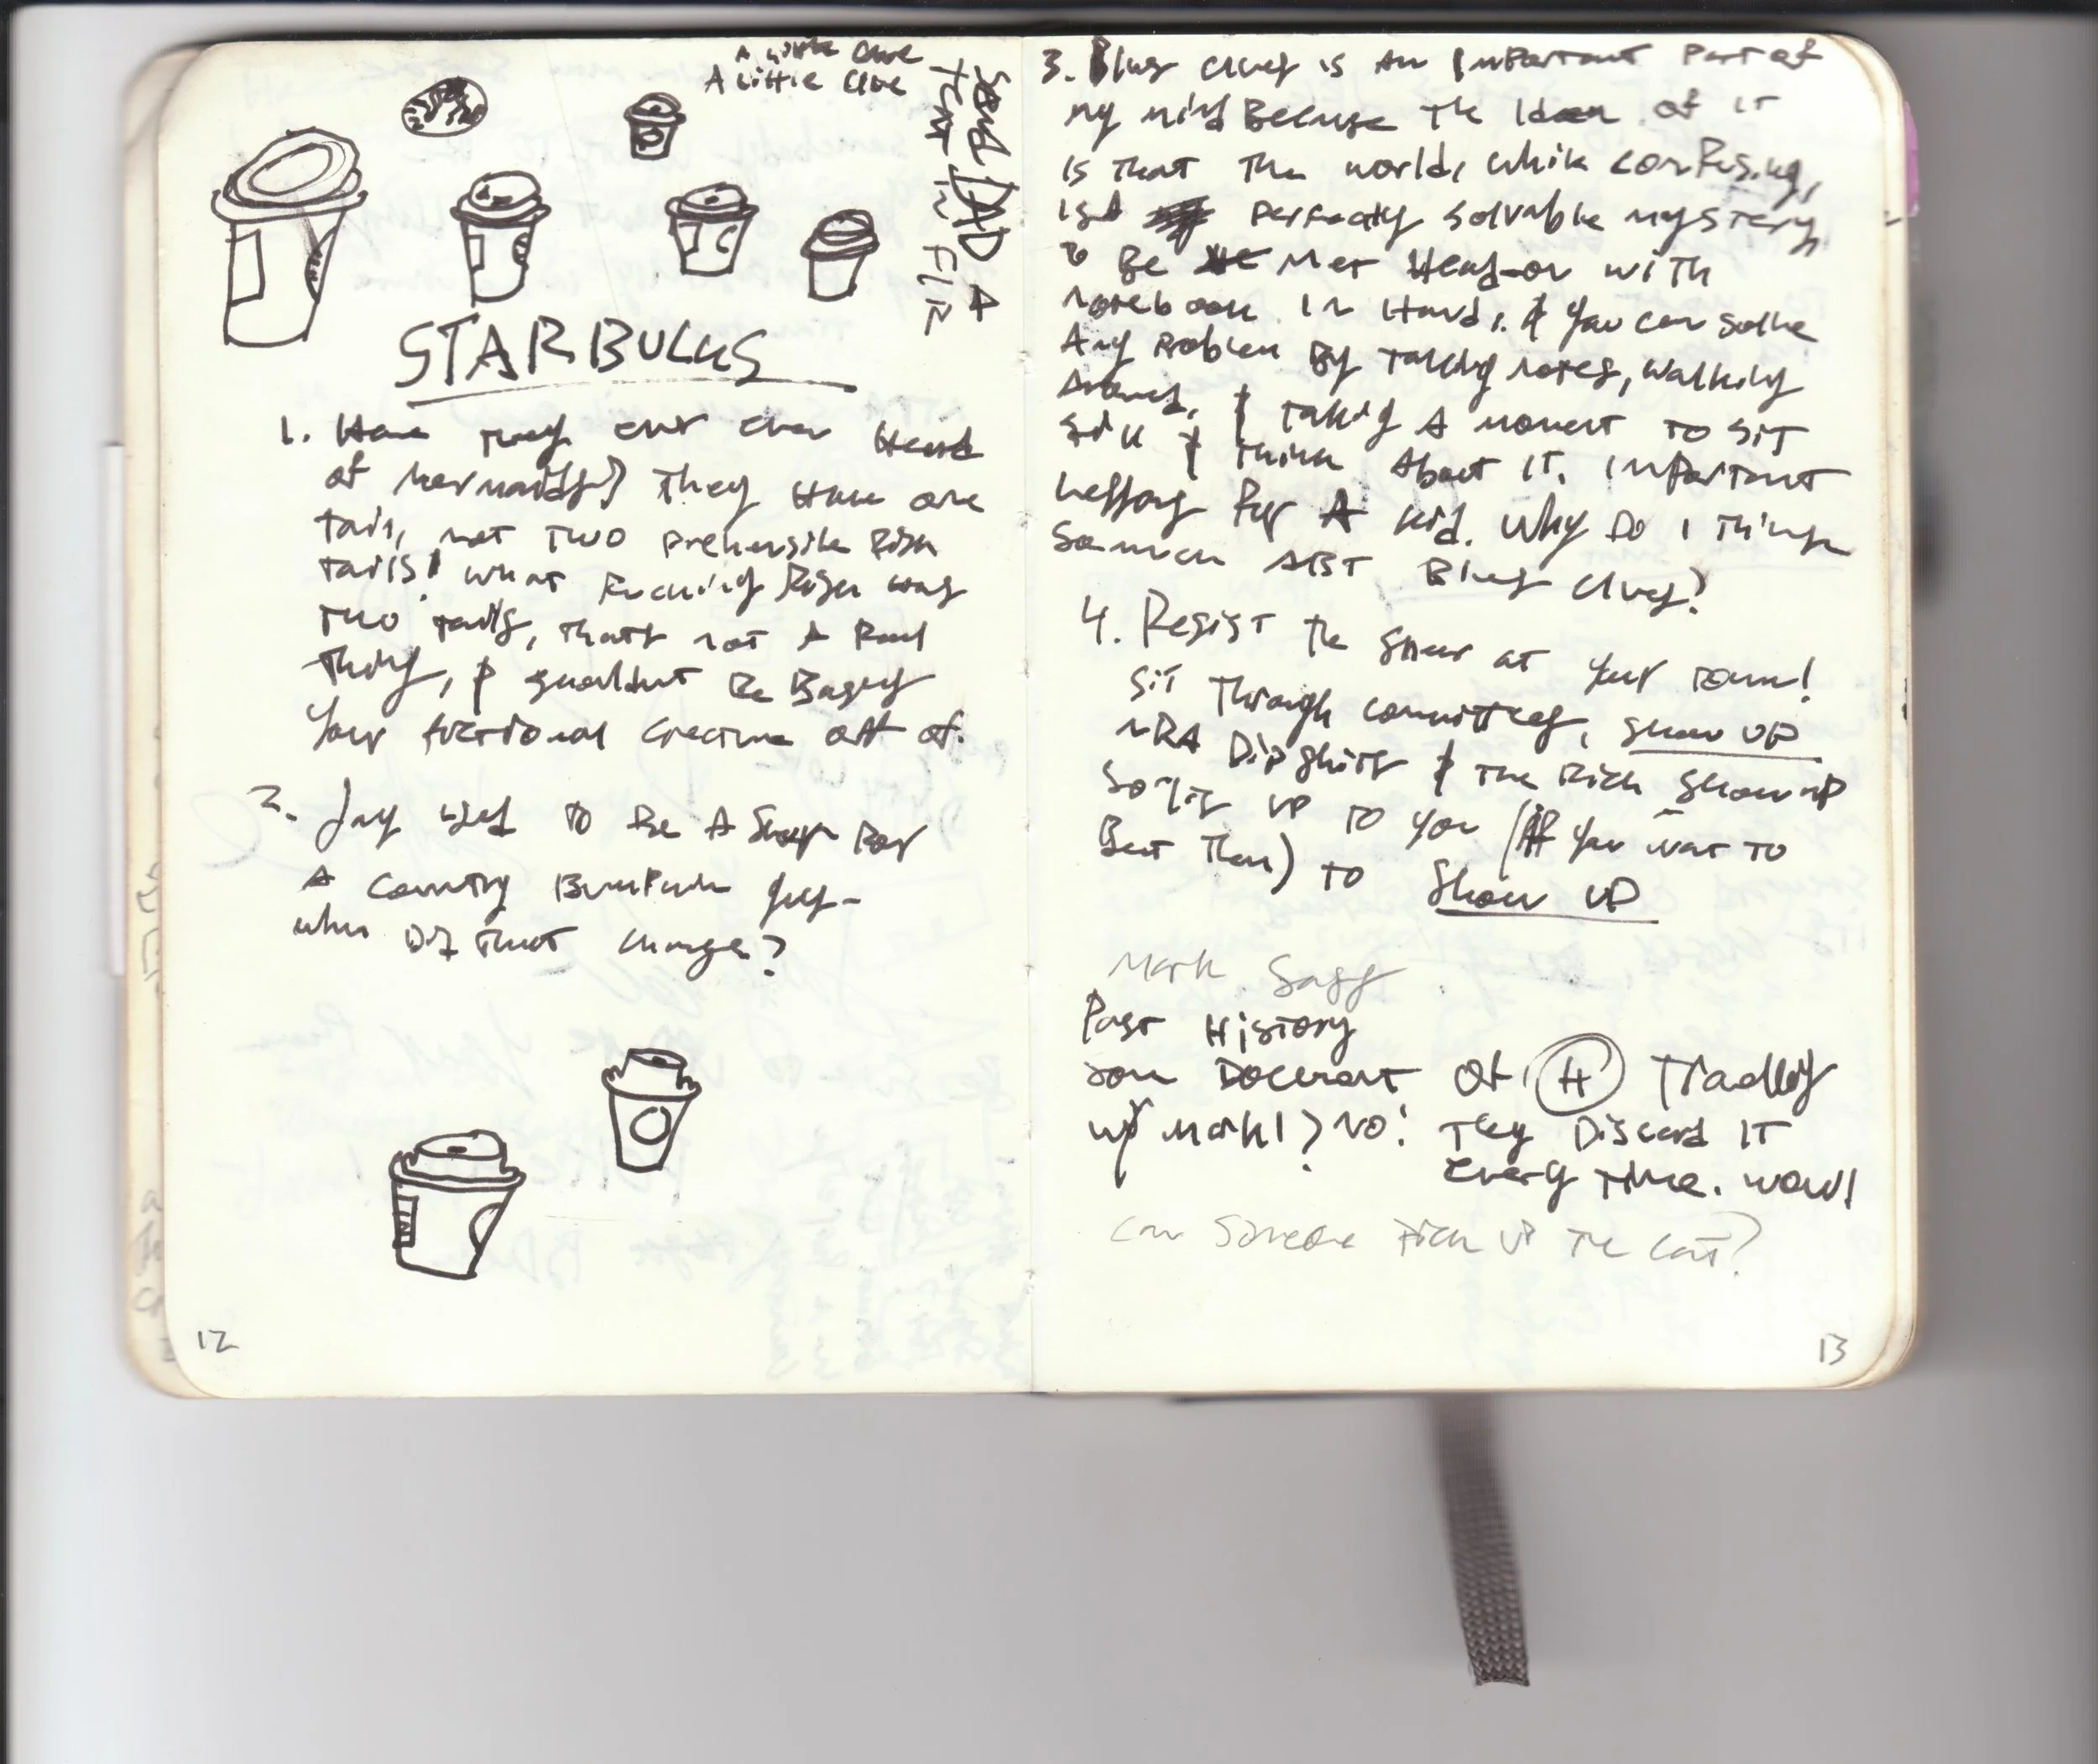 A little clue
A little clue
SEND DAD A
TEXT IN FLIN
STARBUCKS
1. Have they ever even heard
of mermaids? They have one
tail, not two prehensile fish
tails! What fucking fish has
two tails, that's not a real
thing, & shouldn't be basing
your fictional creature off of.
2. Jay used to be a
a country bumpkin guy-
when did that change?
12
3. Blues clues is an important part of
my mind because the idea of it
is that the world, while confusing,
is a perfectly solvable mystery
to be met head-on with
notebook in hand, & you can solve
any problem by taking notes, walking
around, & taking a moment to sit
still & think about it. Important
lessons for a kid. Why do I think
so much abt Blues Clues?
4. Resist the at your town!
Sit through committees, show up
NRA dipshits & the rich show up
so it's up to you (if you want to
beat them) to show up
Mark says
Past History
document of (H)
w/ Mark! > No! They discard it
every time. Wow!
Can someone pick up the cat?
13